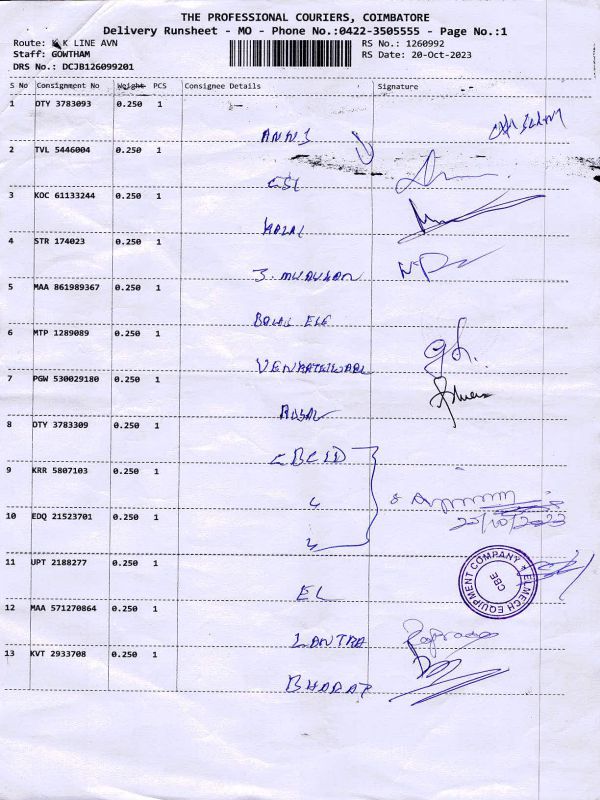 THE PROFESSIONAL COURIERS, COIMBATORE
Delivery Runsheet - MO - Phone No.:0422-3505555 - Page No.:1
Route: K K LINE AVN
RS No.: 1260992
Staff: GOWTHAM
RS Date: 20-Oct-2023
DRS No.: DCJB126099201
S No Consignment No Weight PCS Consignee Details Signature
1 OTY 3783093 0.250 1
2 TVL 5446004 0.250 1
CSI
3 KOC 61133244 0.250 1
4 STR 174023 0.250 1
5 MAA 861989367 0.250 1
6 MTP 1289089 0.250 1
7 PGW 530029180 0.250 1
ROYAL
8 OTY 3783309 0.250 1
9 KRR 5807103 0.250 1
10 EDQ 21523701 0.250 1
20/10/2023
11 UPT 2188277 0.250 1
EL
ELMECH EQUIPMENT COMPANY
CBE
12 MAA 571270864 0.250 1
13 KVT 2933708 0.250 1
BHARAT